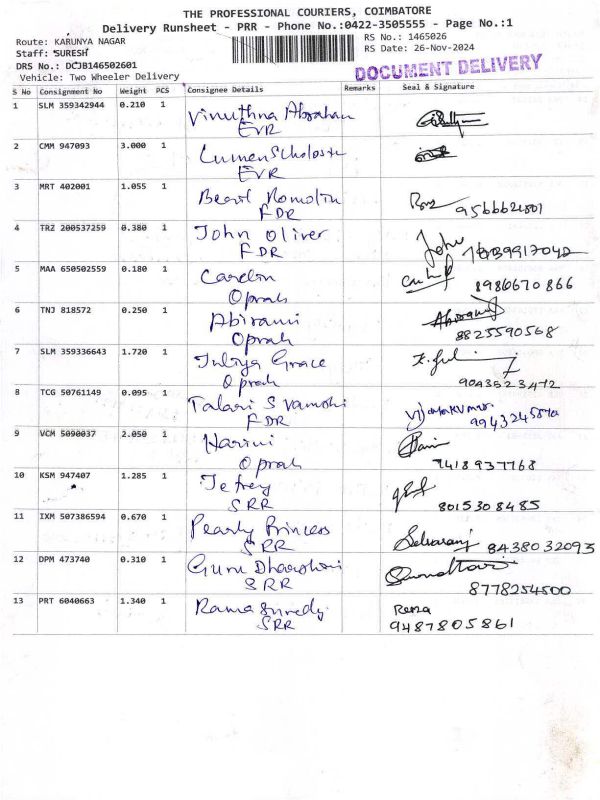 THE PROFESSIONAL COURIERS, COIMBATORE
Delivery Runsheet - PRR - Phone No.:0422-3505555 - Page No.:1
Route: KARUNYA NAGAR
RS No.: 1465026
Staff: SURESH
RS Date: 26-Nov-2024
DRS No.: DCJB146502601
DOCUMENT DELIVERY
Vehicle: Two Wheeler Delivery
S No Consignment No Weight PCS Consignee Details Remarks Seal & Signature
1 SLM 359342944 0.210 1 Vinuthna Abraham
EVR
2 CMM 947093 3.000 1
EVR
3 MRT 402001 1.055 1
FDR
4 TRZ 200537259 0.380 1 John Oliver John
FDR
5 MAA 650502559 0.180 1 8986670866
Oprah
6 TNJ 818572 0.250 1 Abirami Abirami
Oprah 8825590568
7 SLM 359336643 1.720 1 Juliya Grace
Oprah 9043523472
8 TCG 50761149 0.095 1 Talari S Vamshi Vijayakumar
FDR
9 VCM 5090037 2.050 1 Harini
Oprah 7418937768
10 KSM 947407 1.285 1 Jefrey
SRR 8015308485
11 IXM 507386594 0.670 1 Pearly Princess Selvaraj
SRR 8438032093
12 DPM 473740 0.310 1 Guru Dharshini
SRR 8778254500
13 PRT 6040663 1.340 1 Rema
SRR 9487805861